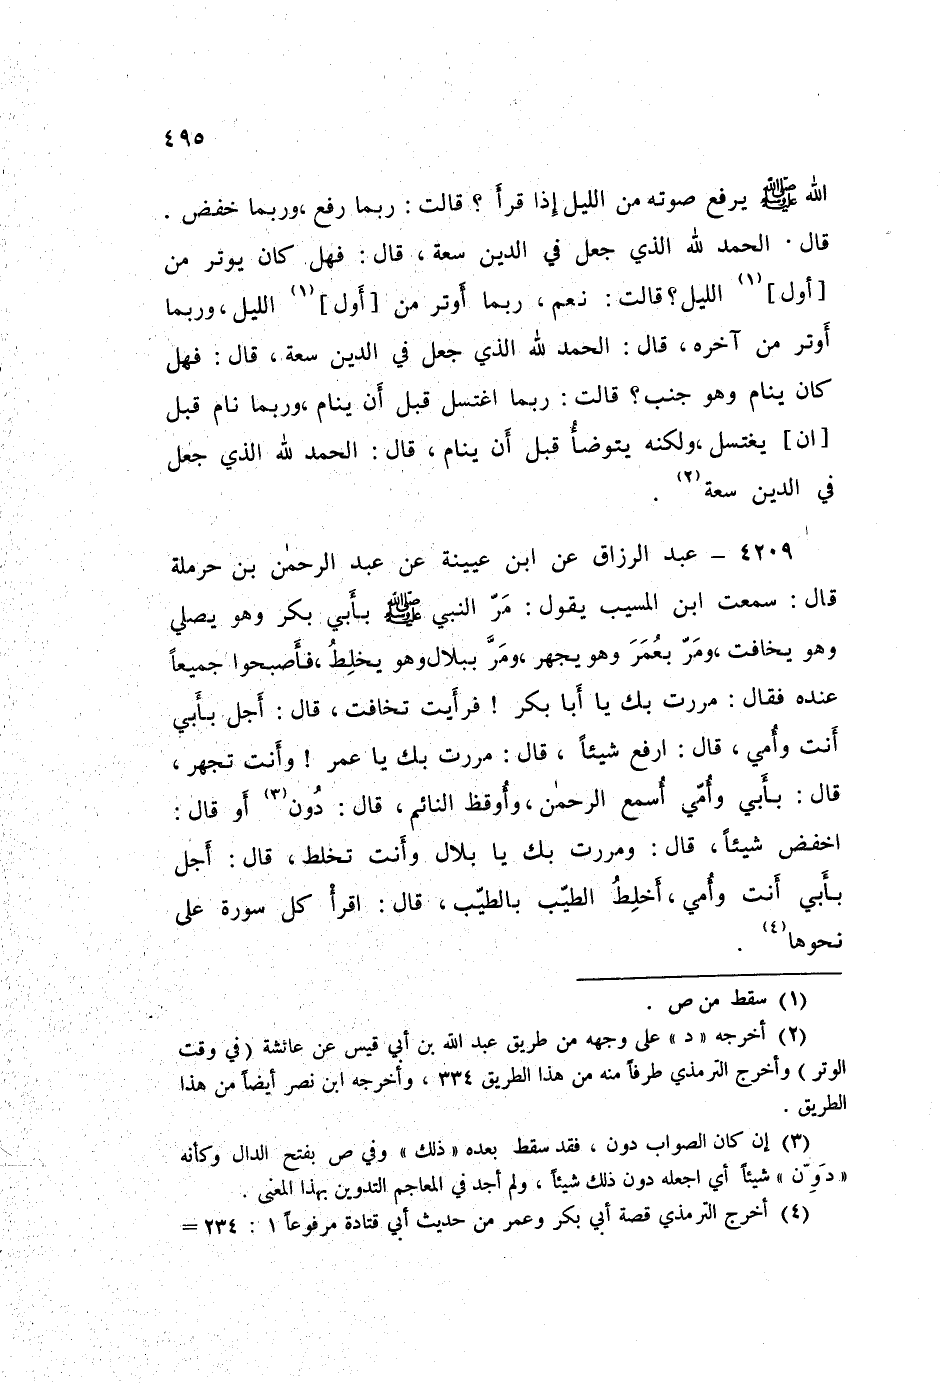 ٤٩٥
الله ﷺ يرفع صوته من الليل إذا قرأ ؟ قالت : ربما رفع ،وربما خفض .
قال · الحمد لله الذي جعل في الدين سعة ، قال : فهل كان يوتر من
[أول] (١) الليل؟ قالت : نعم ، ربما أوتر من [أول] (١) الليل ،وربما
أوتر من آخره ، قال : الحمد لله الذي جعل في الدين سعة ، قال : فهل
كان ينام وهو جنب؟ قالت : ربما اغتسل قبل أن ينام ،وربما نام قبل
[ان] يغتسل ،ولكنه يتوضأُ قبل أن ينام ، قال : الحمد لله الذي جعل
في الدين سعة (٢) .
٤٢٠٩ – عبد الرزاق عن ابن عيينة عن عبد الرحمٰن بن حرملة
قال : سمعت ابن المسيب يقول : مَرّ النبي ﷺ بأبي بكر وهو يصلي
وهو يخافت ،ومَرّ بعُمَرَ وهو يجهر ،ومَرَّ ببلال وهو يخلِطُ ،فأصبحوا جميعاً
عنده فقال : مررت بك يا أبا بكر ! فرأيت تخافت ، قال : أجل بأبي
أنت وأُمي ، قال : ارفع شيئاً ، قال : مررت بك يا عمر ! وأنت تجهر ،
قال : بأبي وأُمّي أُسمع الرحمٰن ،وأُوقظ النائم ، قال : دُون (٣) أو قال :
اخفض شيئاً ، قال : ومررت بك يا بلال وأنت تخلط ، قال : أجل
بأبي أنت وأُمي ،أخلِطُ الطيّب بالطيّب ، قال : اقرأْ كل سورة على
نحوها (٤) .
(١) سقط من ص .
(٢) أخرجه « د » على وجهه من طريق عبد الله بن أبي قيس عن عائشة ( في وقت
الوتر ) وأخرج الترمذي طرفاً منه من هذا الطريق ٣٣٤ ، وأخرجه ابن نصر أيضاً من هذا
الطريق .
(٣) إن كان الصواب دون ، فقد سقط بعده « ذلك » وفي ص بفتح الدال وكأنه
« دَوِّن » شيئاً أي اجعله دون ذلك شيئاً ، ولم أجد في المعاجم التدوين بهذا المعنى .
(٤) أخرج الترمذي قصة أبي بكر وعمر من حديث أبي قتادة مرفوعاً ١ : ٢٣٤ =